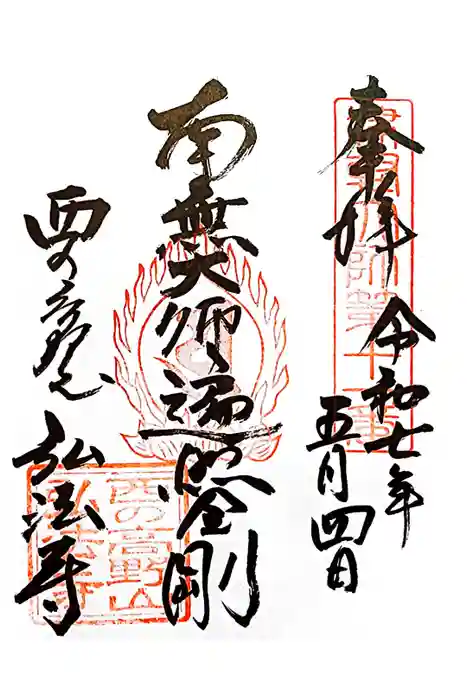 奉拝
令和七年
五月四日
南無大師遍照金剛
西の高野山
弘法寺
西の高野山
弘法寺